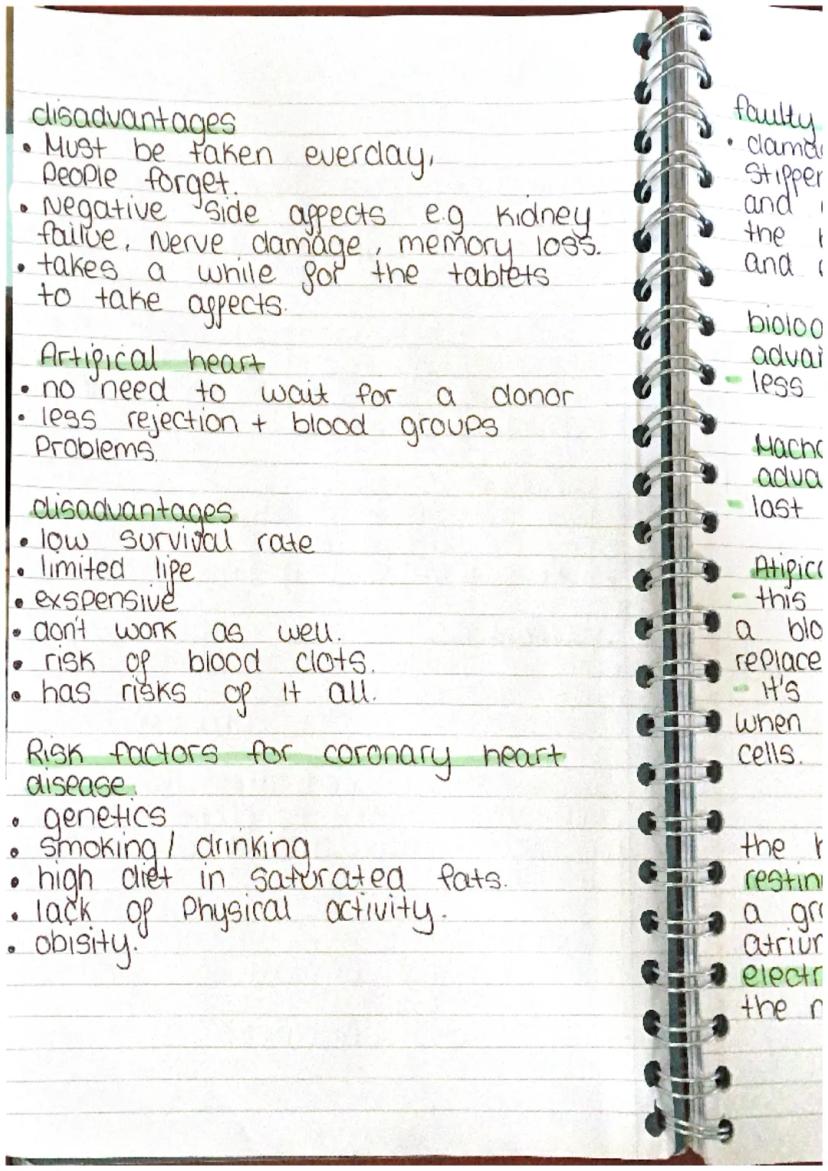 disadvantages
• Must be taken everday,
People forget.
• Negative side affects e.g kidney
failue, Nerve damage, memory loss.
• takes a while for the tablets
to take affects.
Artifical heart
• no need to wait for a donor
• less rejection + blood groups
Problems.
disadvantages
• low survival rate
• limited life
• exspensive
• don't work as well.
• risk of blood clots.
• has risks of it all.
Risk factors for coronary heart
disease.
• genetics
• smoking / drinking
• high diet in saturated fats.
• lack of Physical activity.
• obisity.
faulty
and
the
and
- less
- last
- this
a
- it's
when
cells.
the
a
the